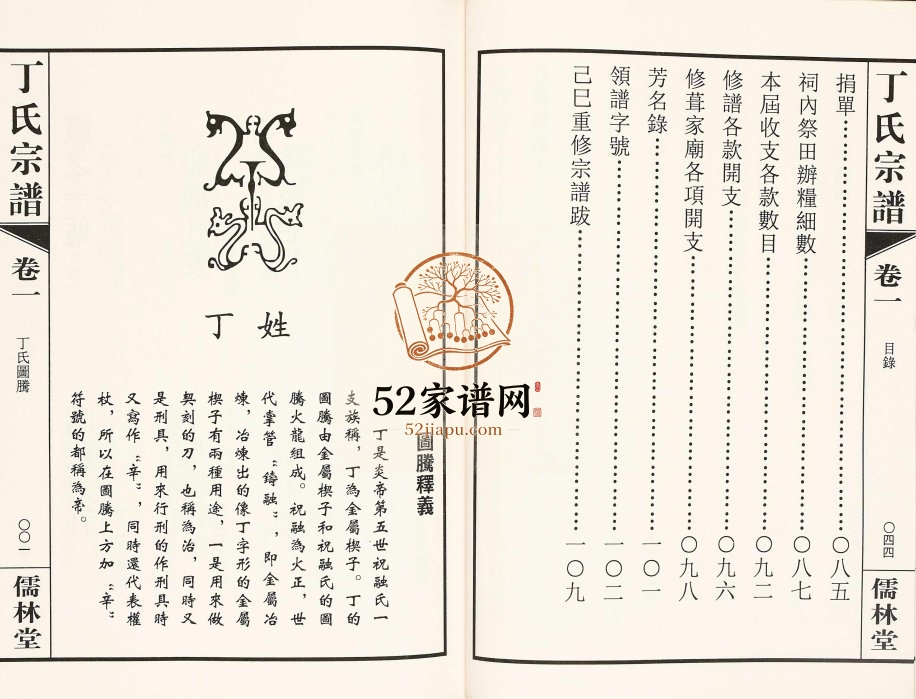 丁氏宗譜
卷一
目錄
〇四四
儒林堂
捐單……〇八五
祠內祭田辦糧細數……〇八七
本屆收支各款數目……〇九二
修譜各款開支……〇九六
修葺家廟各項開支……〇九八
芳名錄……一〇一
領譜字號……一〇二
己巳重修宗譜跋……一〇九
姓丁
圖騰釋義
丁是炎帝第五世祝融氏一
支族稱，丁為金屬楔子。丁的
圖騰由金屬楔子和祝融氏的圖
騰火龍組成。祝融為火正，世
代掌管“鑄融”，即金屬冶
煉，冶煉出的像丁字形的金屬
楔子有兩種用途，一是用來做
契刻的刀，也稱為治，同時又
是刑具，用來行刑的作刑具時
又寫作“辛”，同時還代表權
杖，所以在圖騰上方加“辛”
符號的都稱為帝。
丁氏宗譜
卷一
丁氏圖騰
〇〇一
儒林堂
52家谱网
52jiapu.com